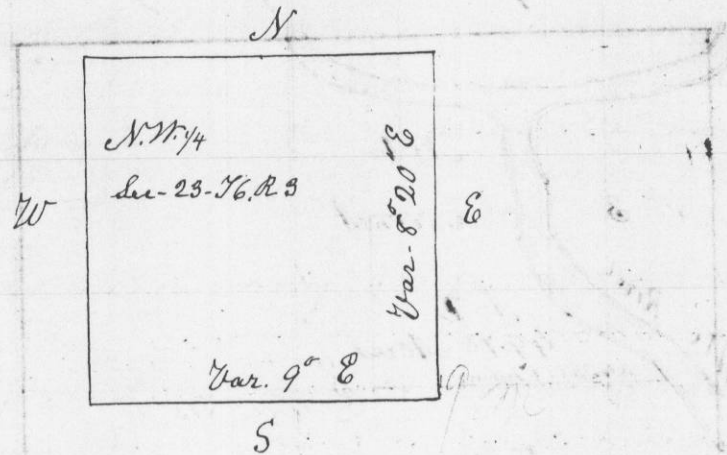 N
N.W. 1/4
Sec - 23 - T6, R3
W
Var - 8° 20" E
E
Var. 9° E
S